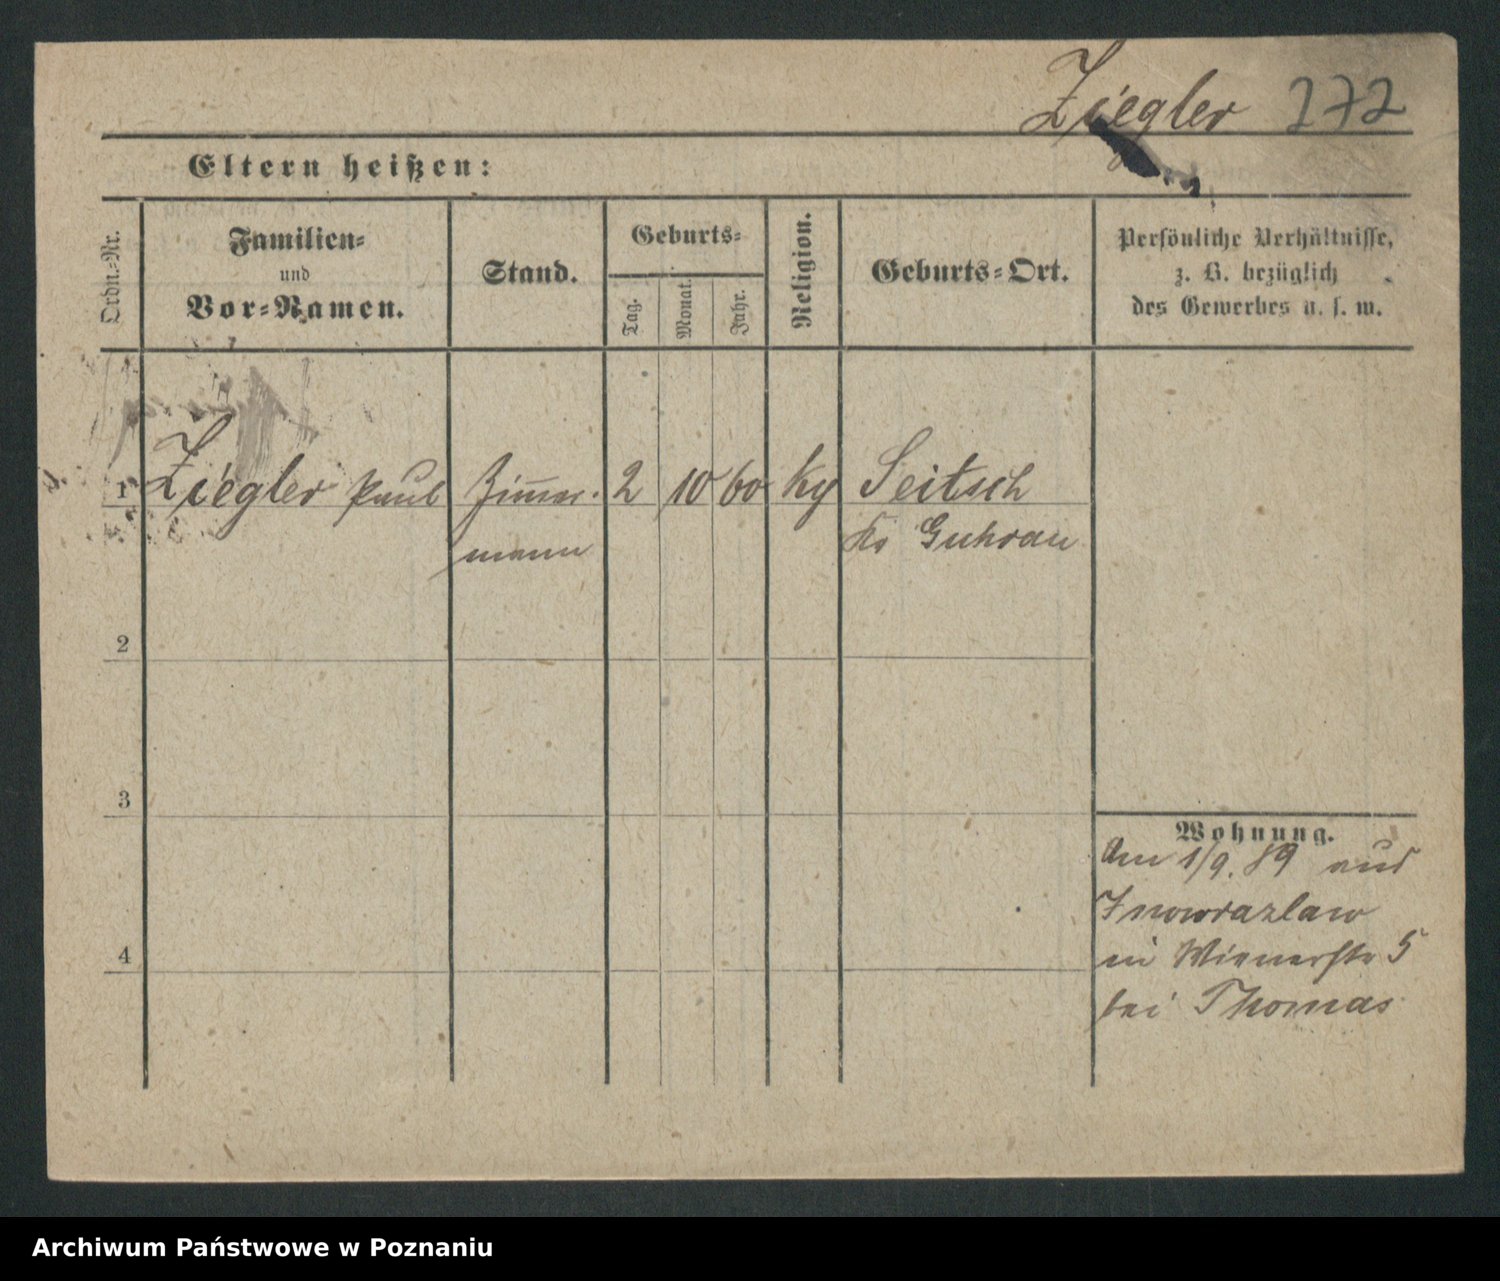 Ziegler 272
Eltern heißen:
Ordn.-Nr.
Familien-
und
Vor-Namen.
Stand.
Geburts-
Tag.
Monat.
Jahr.
Religion.
Geburts-Ort.
Persönliche Verhältnisse,
z. B. bezüglich
des Gewerbes u. s. w.
1 Ziegler Paul Zimmer- 2 10 60 Seitsch
mann Kr Guhrau
2
3
4
Wohnung.
Am 1/9. 89 aus
Inowrazlaw
in Wienerstr 5
bei Thomas
Archiwum Państwowe w Poznaniu